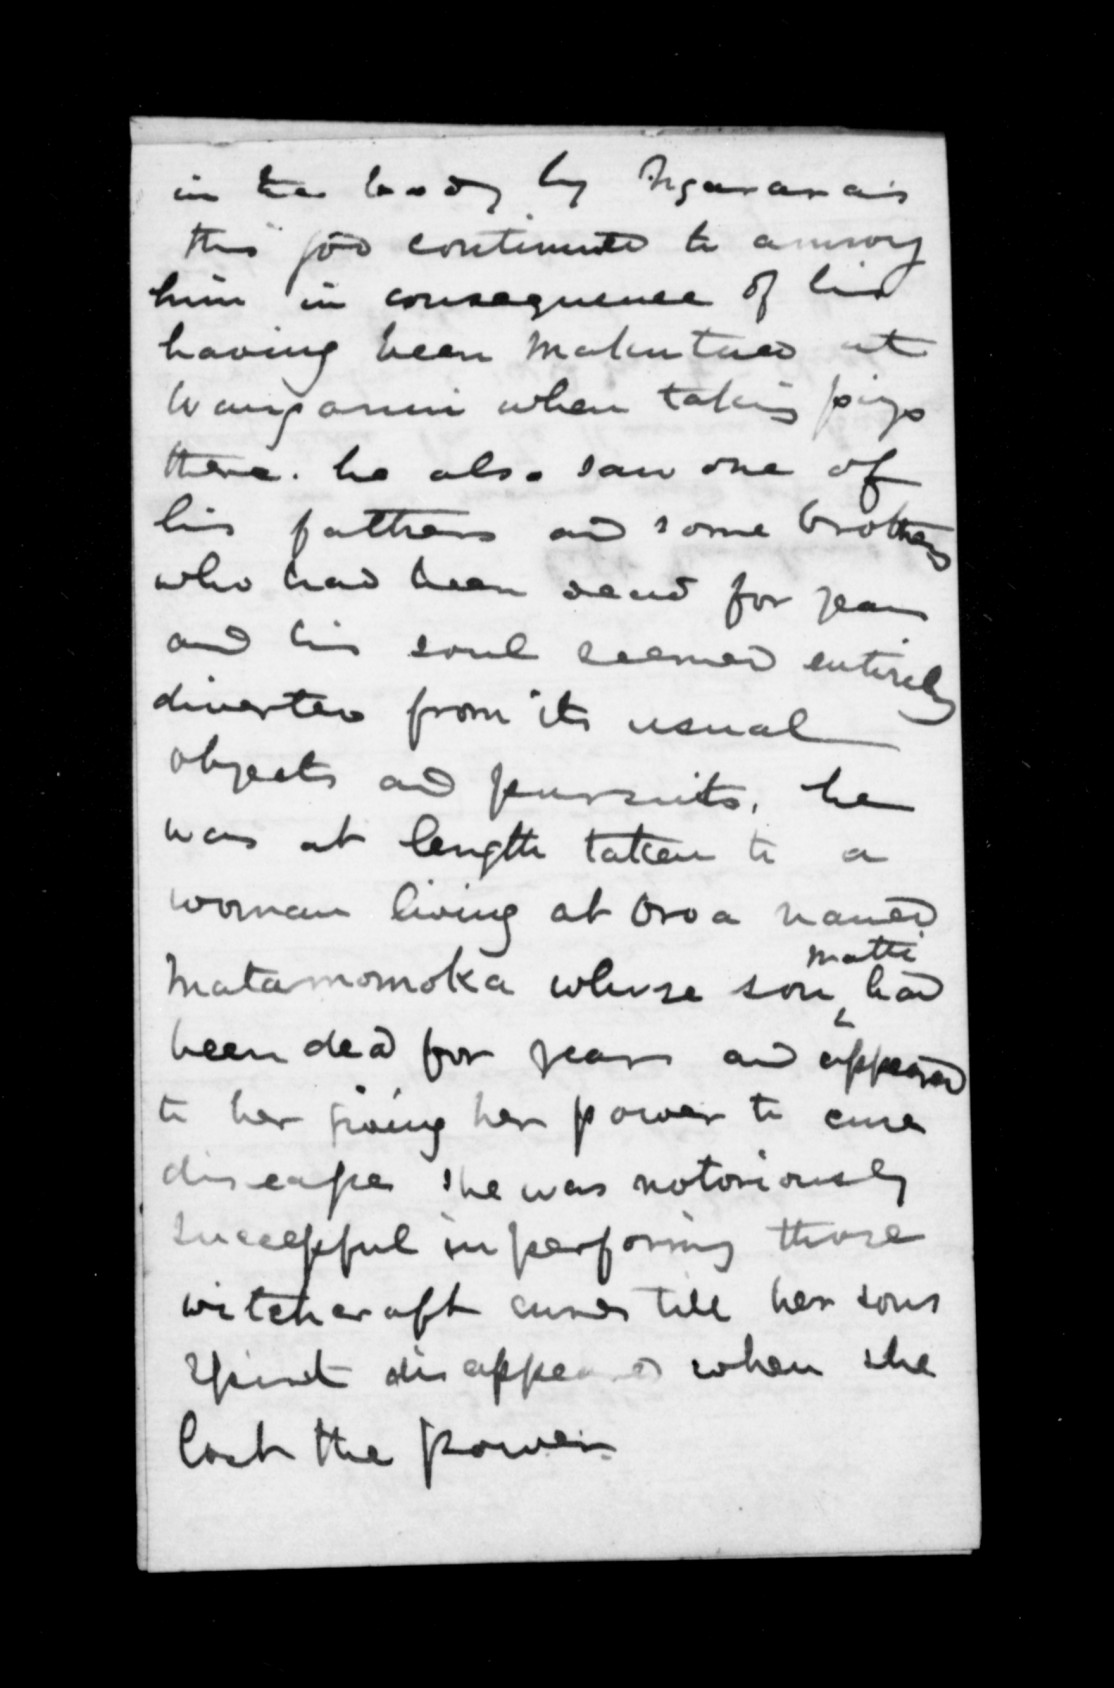 in the body by Ngararais
this god continued to annoy
him in consequence of his
having been Makutued at
Wanganui when taking pigs
there. he also saw one of
his fathers and some brothers
who had been dead for years
and his soul seemed entirely
diverted from its usual
objects and pursuits, he
was at length taken to a
woman living at Oroa named
Matamomoka whose son Matti had
been dead for years and appeared
to her giving her power to cure
disease she was notoriously
successful in performing those
witchcraft cures till her sons
spirit disappeared when she
lost the power.